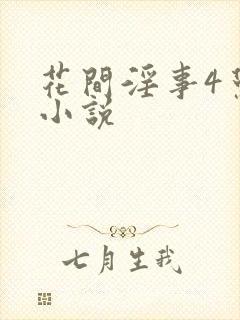 花間淫事4
小説
七月生我